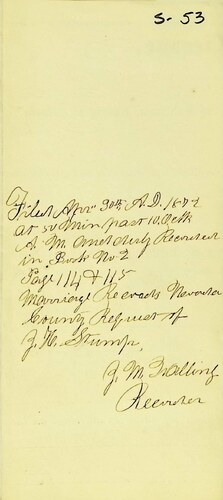 S-53
Filed Apr 30th A.D. 18
at 50 Min past 10, Oclk
A M. and duly Recorded
in Book No 2
Page 114 & 115
Marriage Records Nevada
County Request of
J. H. Stump.
J. M.
Recorder